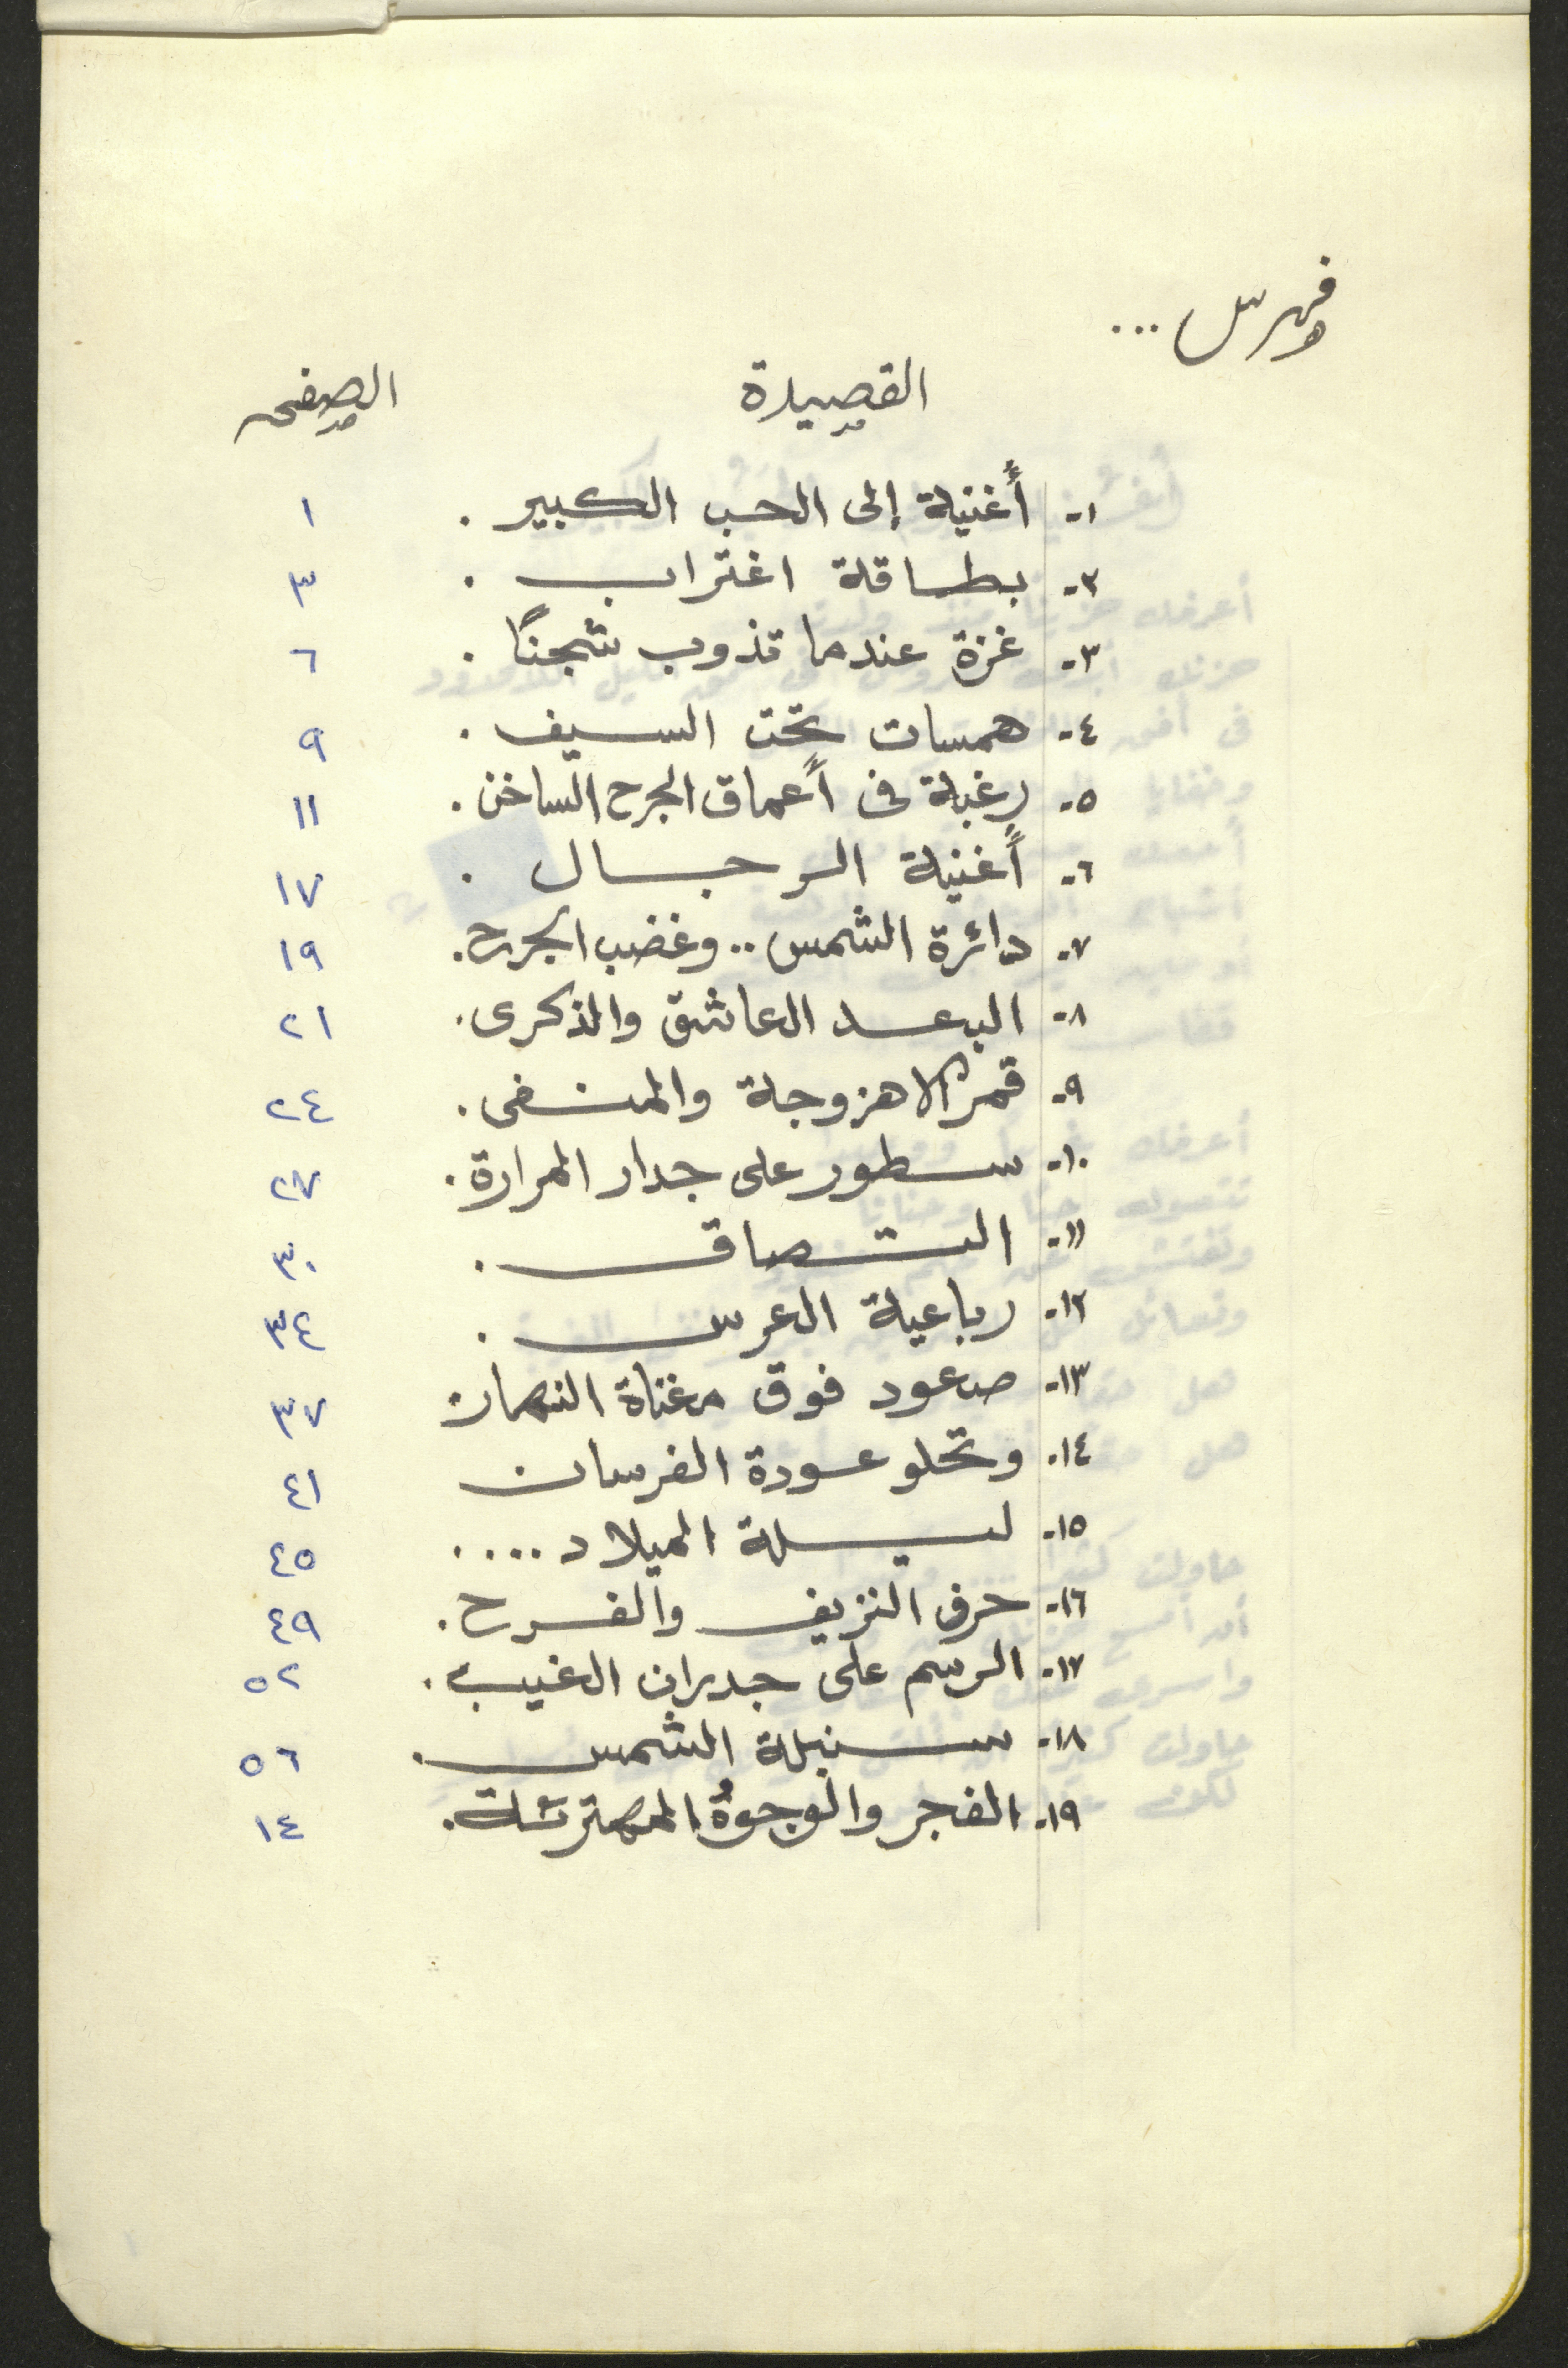 فهرس ...
القصيدة الصفحه
١- أغنية إلى الحب الكبير . ١
٢- بطاقة اغتراب . ٣
٣- غزة عندما تذوب شجنًا . ٦
٤- همسات تحت السيف . ٩
٥- رغبة فى أعماق الجرح الساخن . ١١
٦- أغنية الرجال . ١٧
٧- دائرة الشمس .. وغضب الجرح . ١٩
٨- البعد العاشق والذكرى . ٢١
٩- قمر الاهزوجة والمنفى . ٢٤
١٠- سطور على جدار المرارة . ٢٧
١١- التصاق . ٣٠
١٢- رباعية العرس . ٣٤
١٣- صعود فوق مغناة ٣٧
١٤- وتحلو عودة الفرسان ٤١
١٥- ليلة الميلاد .... ٤٥
١٦- حرف النزيف والفرح . ٤٩
١٧- الرسم على جدران الغيب . ٥٢
١٨- سنبلة الشمس . ٥٦
١٩- الفجر والوجوه المهترئة . ١٤